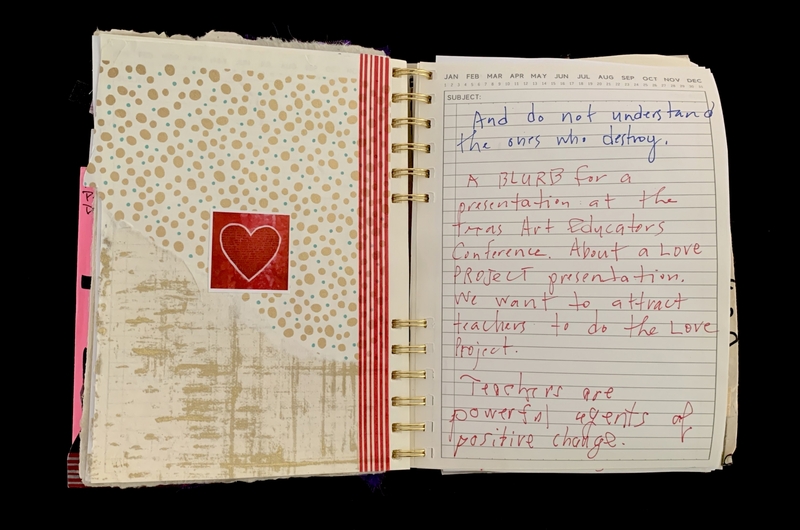 JAN FEB MAR APR MAY JUN JUL AUG SEP OCT NOV DEC
SUBJECT:
And do not understand
the ones who destroy.
A BLURB for a
presentation at the
Texas Art Educators
Conference. About a LOVE
PROJECT presentation.
We want to attract
teachers to do the LOVE
Project.
Teachers are
powerful agents of
positive change.